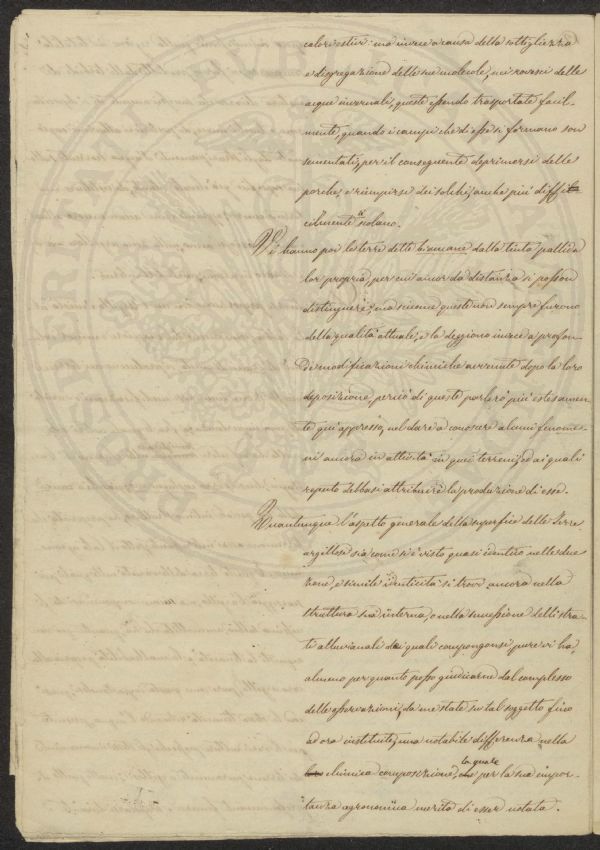 calori estivi: ma invece a causa della sottigliezza
e disgregazione delle sue molecole, ne' rovesci delle
acque invernali, queste essendo trasportate facil-
mente, quando i campi che di esse si formano son
sementati, per il conseguente deprimersi delle
porche, e riempirsi dei solchi, anche più diffi
cilmente scolano.
Vi hanno poi le terre dette biancane dalla tinta pallida
lor propria, per cui ancor da distanza si posson
distinguere; ma siccome queste non sempre furono
della qualità attuale, e la deggiono invece a profon-
de modificazioni chimiche avvenute dopo la loro
deposizione, perciò di queste parlerò più estesamen-
te qui appresso, nel dare a conoscere alcuni fenome-
ni ancora in attività in quei terreni, ed ai quali
reputo debbasi attribuire la produzione di esse.
Quantunque l'aspetto generale della superfice delle Terre
argillose sia come si è visto quasi identico nelle due
zone, e simile identicità si trovi ancora nella
struttura sua interna, e nella successione delli stra-
ti alluvianali dai quali compongonsi, pure vi ha,
almeno per quanto posso giudicarne dal complesso
delle osservazioni, da me state su tal soggetto fino
ad ora instituite, una notabile differenza nella
loro chimica composizione, la quale per la sua impor-
tanza agronomica merita di esser notata.